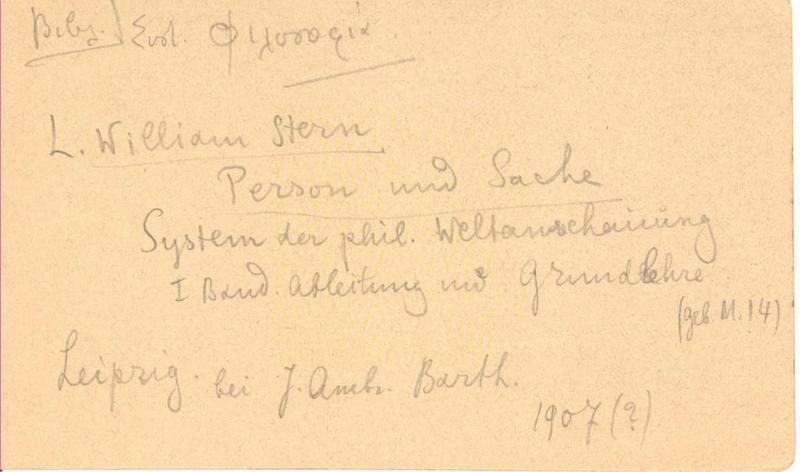 Syst. Φιλοσοφία.
L. William Stern
Person und Sache
System der phil. Weltanschauung
I Band. Ableitung und Grundlehre
(geb. M. 14)
Leipzig. bei J. Ambr. Barth.
1907 (?)